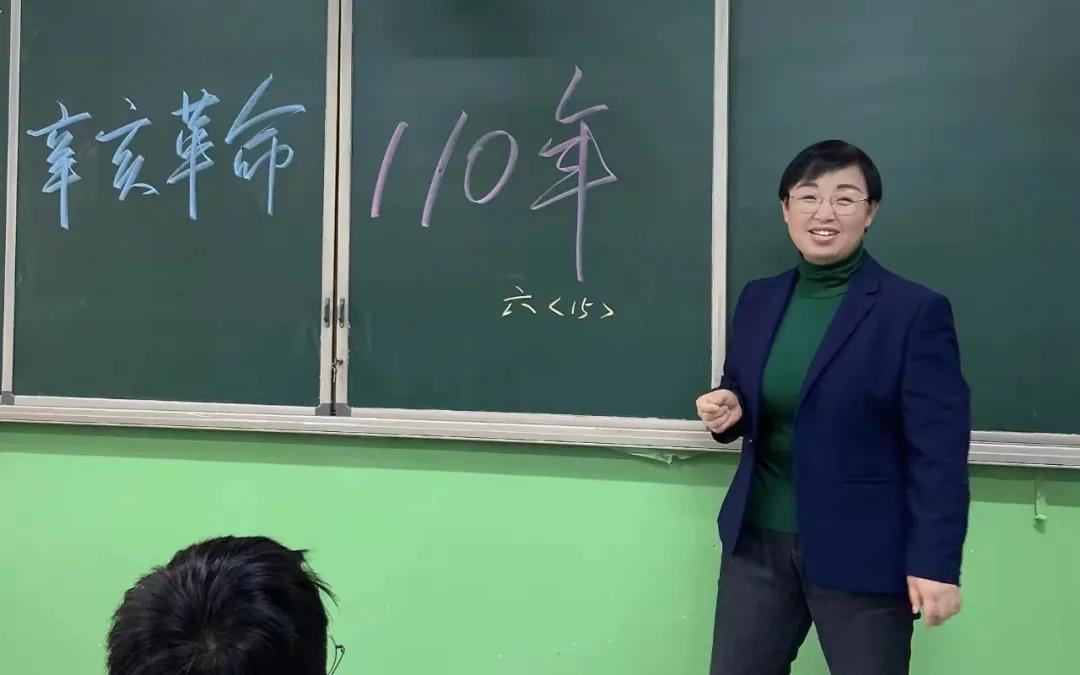 辛亥革命
110年
六<15>